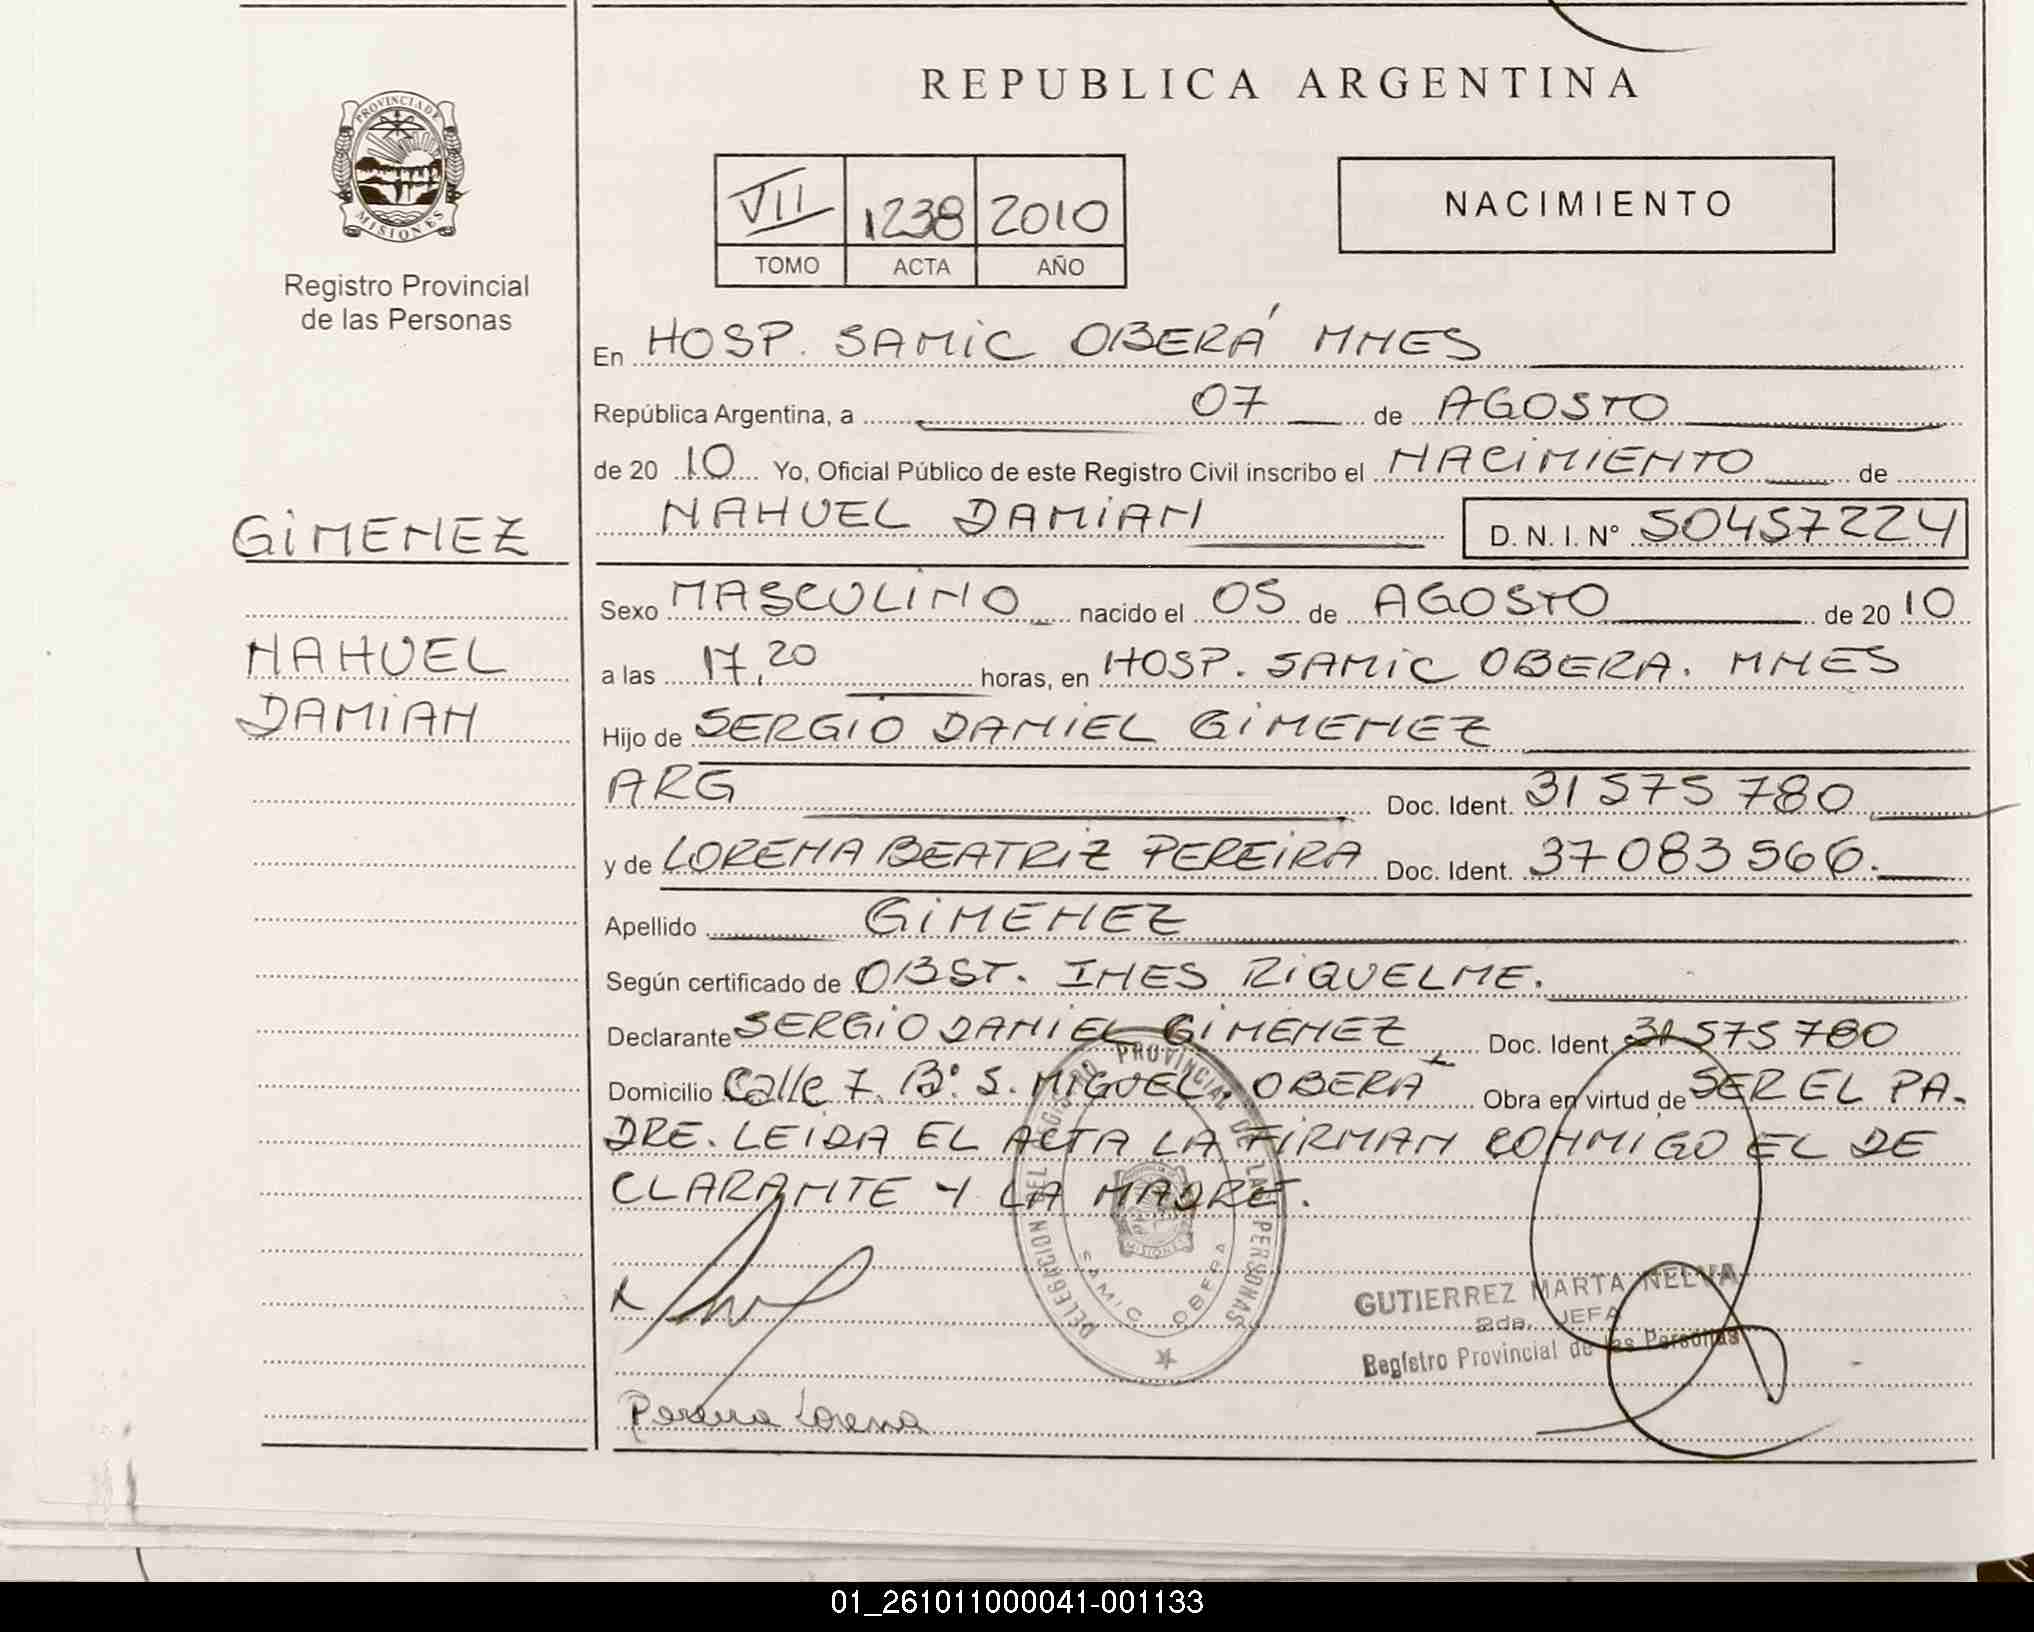 REPUBLICA ARGENTINA
PROVINCIA DE
MISIONES
Registro Provincial
de las Personas
VII 1238 2010
TOMO ACTA AÑO
NACIMIENTO
En HOSP. SAMIC OBERÁ MNES
República Argentina, a 07 de AGOSTO
de 20 10 Yo, Oficial Público de este Registro Civil inscribo el NACIMIENTO de
NAHUEL DAMIAN D. N. I. Nº 50457224
GIMENEZ
NAHUEL
DAMIAN
Sexo MASCULINO nacido el 05 de AGOSTO de 20 10
a las 17,20 horas, en HOSP. SAMIC OBERA. MNES
Hijo de SERGIO DANIEL GIMENEZ
ARG Doc. Ident. 31 575 780
y de LORENA BEATRIZ PEREIRA Doc. Ident. 37 083 566.
Apellido GIMENEZ
Según certificado de OBST. INES RIQUELME.
Declarante SERGIO DANIEL GIMENEZ Doc. Ident. 31 575 780
Domicilio Calle 7. Bº. S. MIGUEL. OBERÁ Obra en virtud de SER EL PA-
DRE. LEIDA EL ACTA LA FIRMAN CONMIGO EL DE
CLARANTE Y LA MADRE.
DELEGACION DEL REGISTRO PROVINCIAL DE LAS PERSONAS
SAMIC OBERA
MISIONES
GUTIERREZ MARTA NELVA
2da. JEFA
Registro Provincial de las Personas
Pereira Lorena
01_261011000041-001133